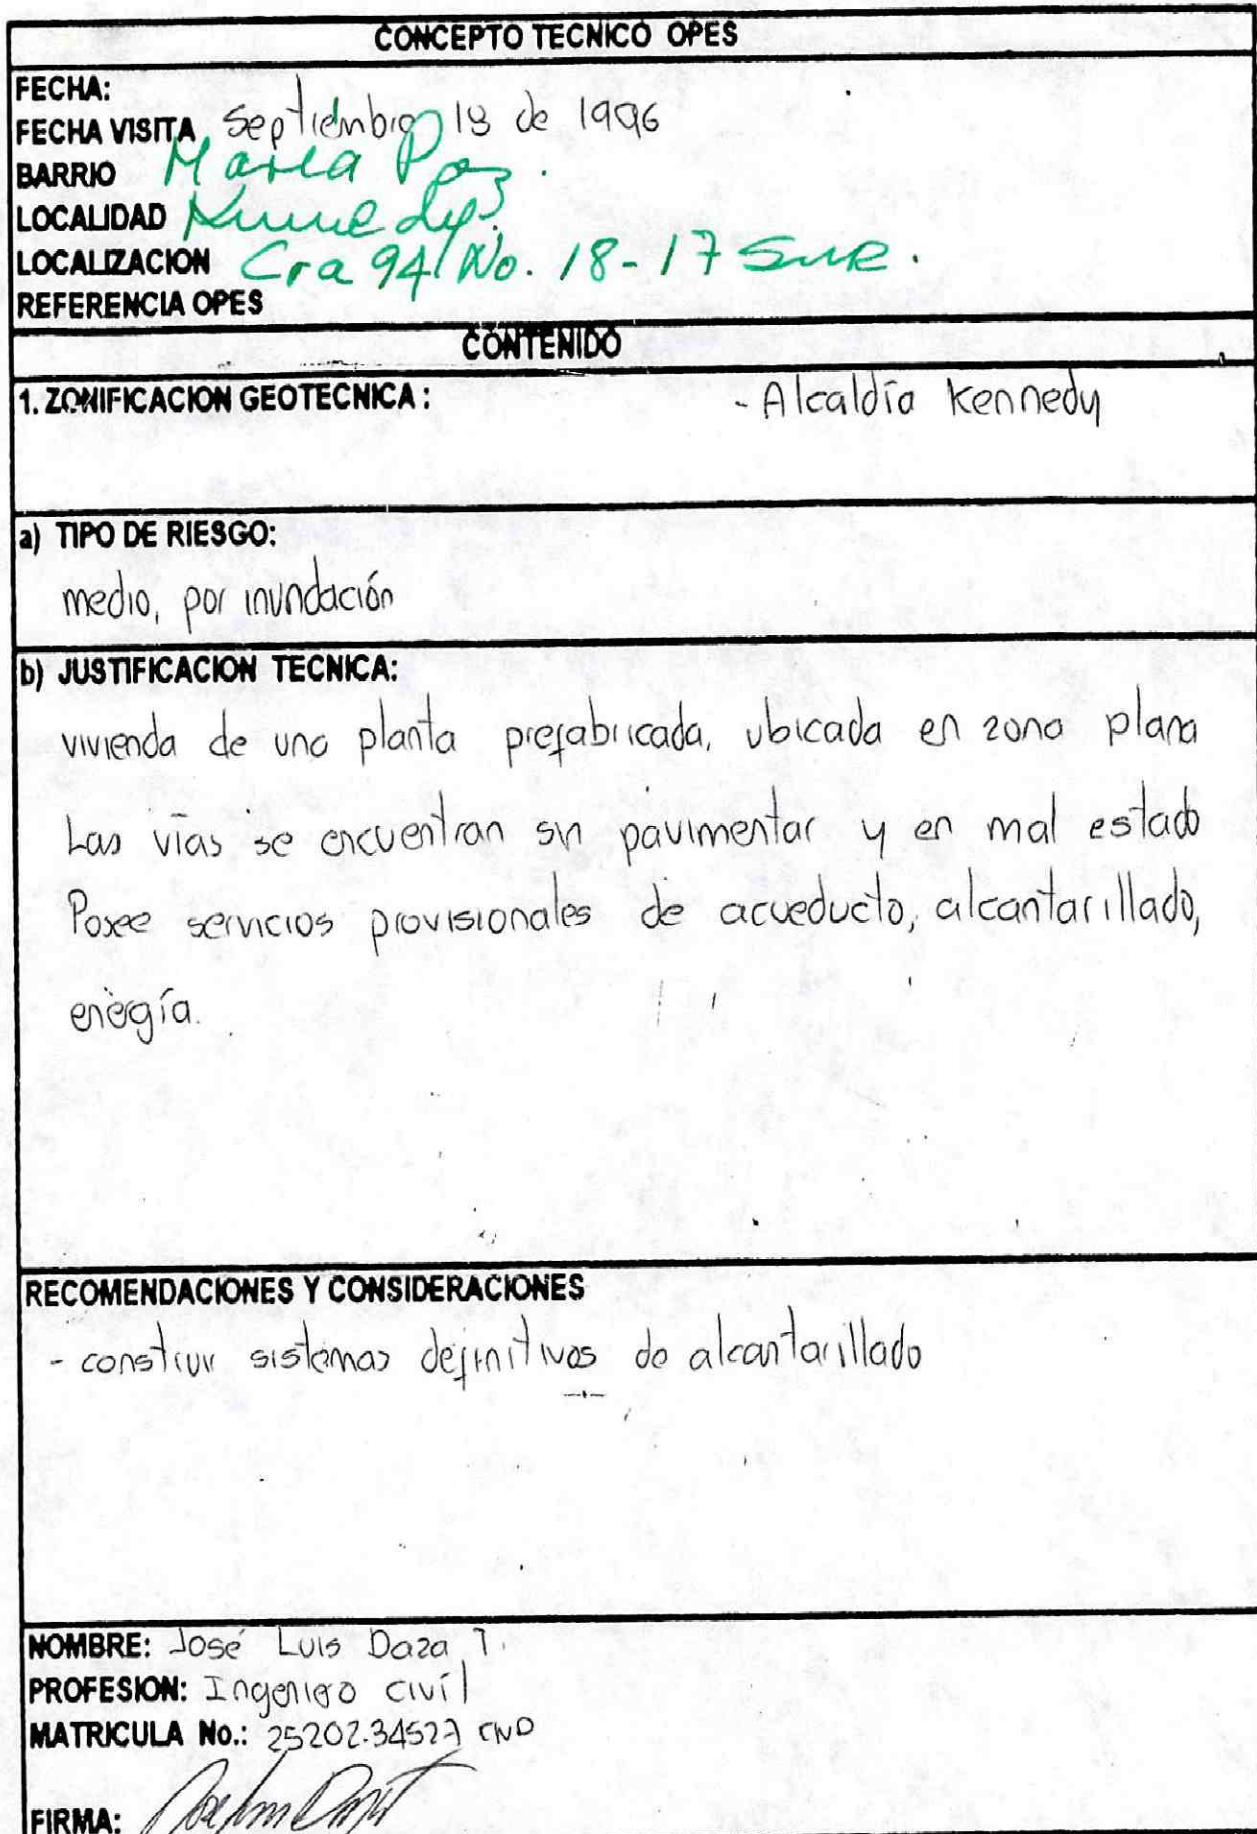 CONCEPTO TECNICO OPES
FECHA:
FECHA VISITA Septiembre 18 de 1996
BARRIO Maria Paz.
LOCALIDAD Kennedy.
LOCALIZACION Cra 94 No. 18-17 SUR.
REFERENCIA OPES
CONTENIDO
1. ZONIFICACION GEOTECNICA: - Alcaldía Kennedy
a) TIPO DE RIESGO:
medio, por inundación
b) JUSTIFICACION TECNICA:
vivienda de una planta prefabricada, ubicada en zona plana
Las vías se encuentran sin pavimentar y en mal estado
Posee servicios provisionales de acueducto, alcantarillado,
energía.
RECOMENDACIONES Y CONSIDERACIONES
- construir sistemas definitivos de alcantarillado
NOMBRE: José Luis Daza T.
PROFESION: Ingeniero civil
MATRICULA No.: 25202-34527 CND
FIRMA: